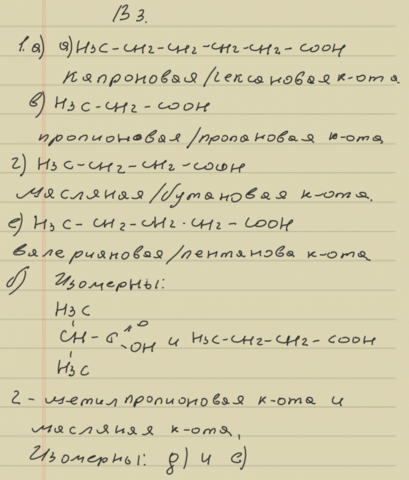 В 3.
1. а) а) H3C-CH2-CH2-CH2-CH2-COOH
капроновая/гексановая к-ота
в) H3C-CH2-COOH
пропионовая/пропановая к-ота
г) H3C-CH2-CH2-COOH
масляная/бутановая к-ота.
е) H3C-CH2-CH2-CH2-COOH
валериановая/пентанова к-ота
б) Изомерны:
H3C
CH-C=O
-OH и H3C-CH2-CH2-COOH
H3C
2-метилпропионовая к-ота и
масляная к-ота,
Изомерны: д) и е)